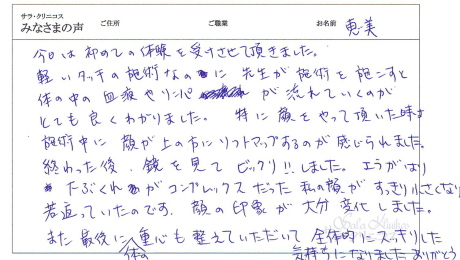 サラ・クリニコス
みなさまの声 ご住所 ご職業 お名前 恵美
今日は初めての体験を受けさせて頂きました。
軽いタッチの施術なのに先生が施術を施こすと
体の中の血液やリンパが流れていくのが
とても良くわかりました。特に顔をやって頂いた時は
施術中に顔が上の方にリフトアップするのが感じられました。
終わった後、鏡を見てビックリ!!しました。エラがはり
たぶくれがコンプレックスだった私の顔がすっきり小さくなり
若返っていたのです。顔の印象が大分変化しました。
また最後に体の重心も整えていただいて全体的にスッキリした
気持ちになりましたありがとう